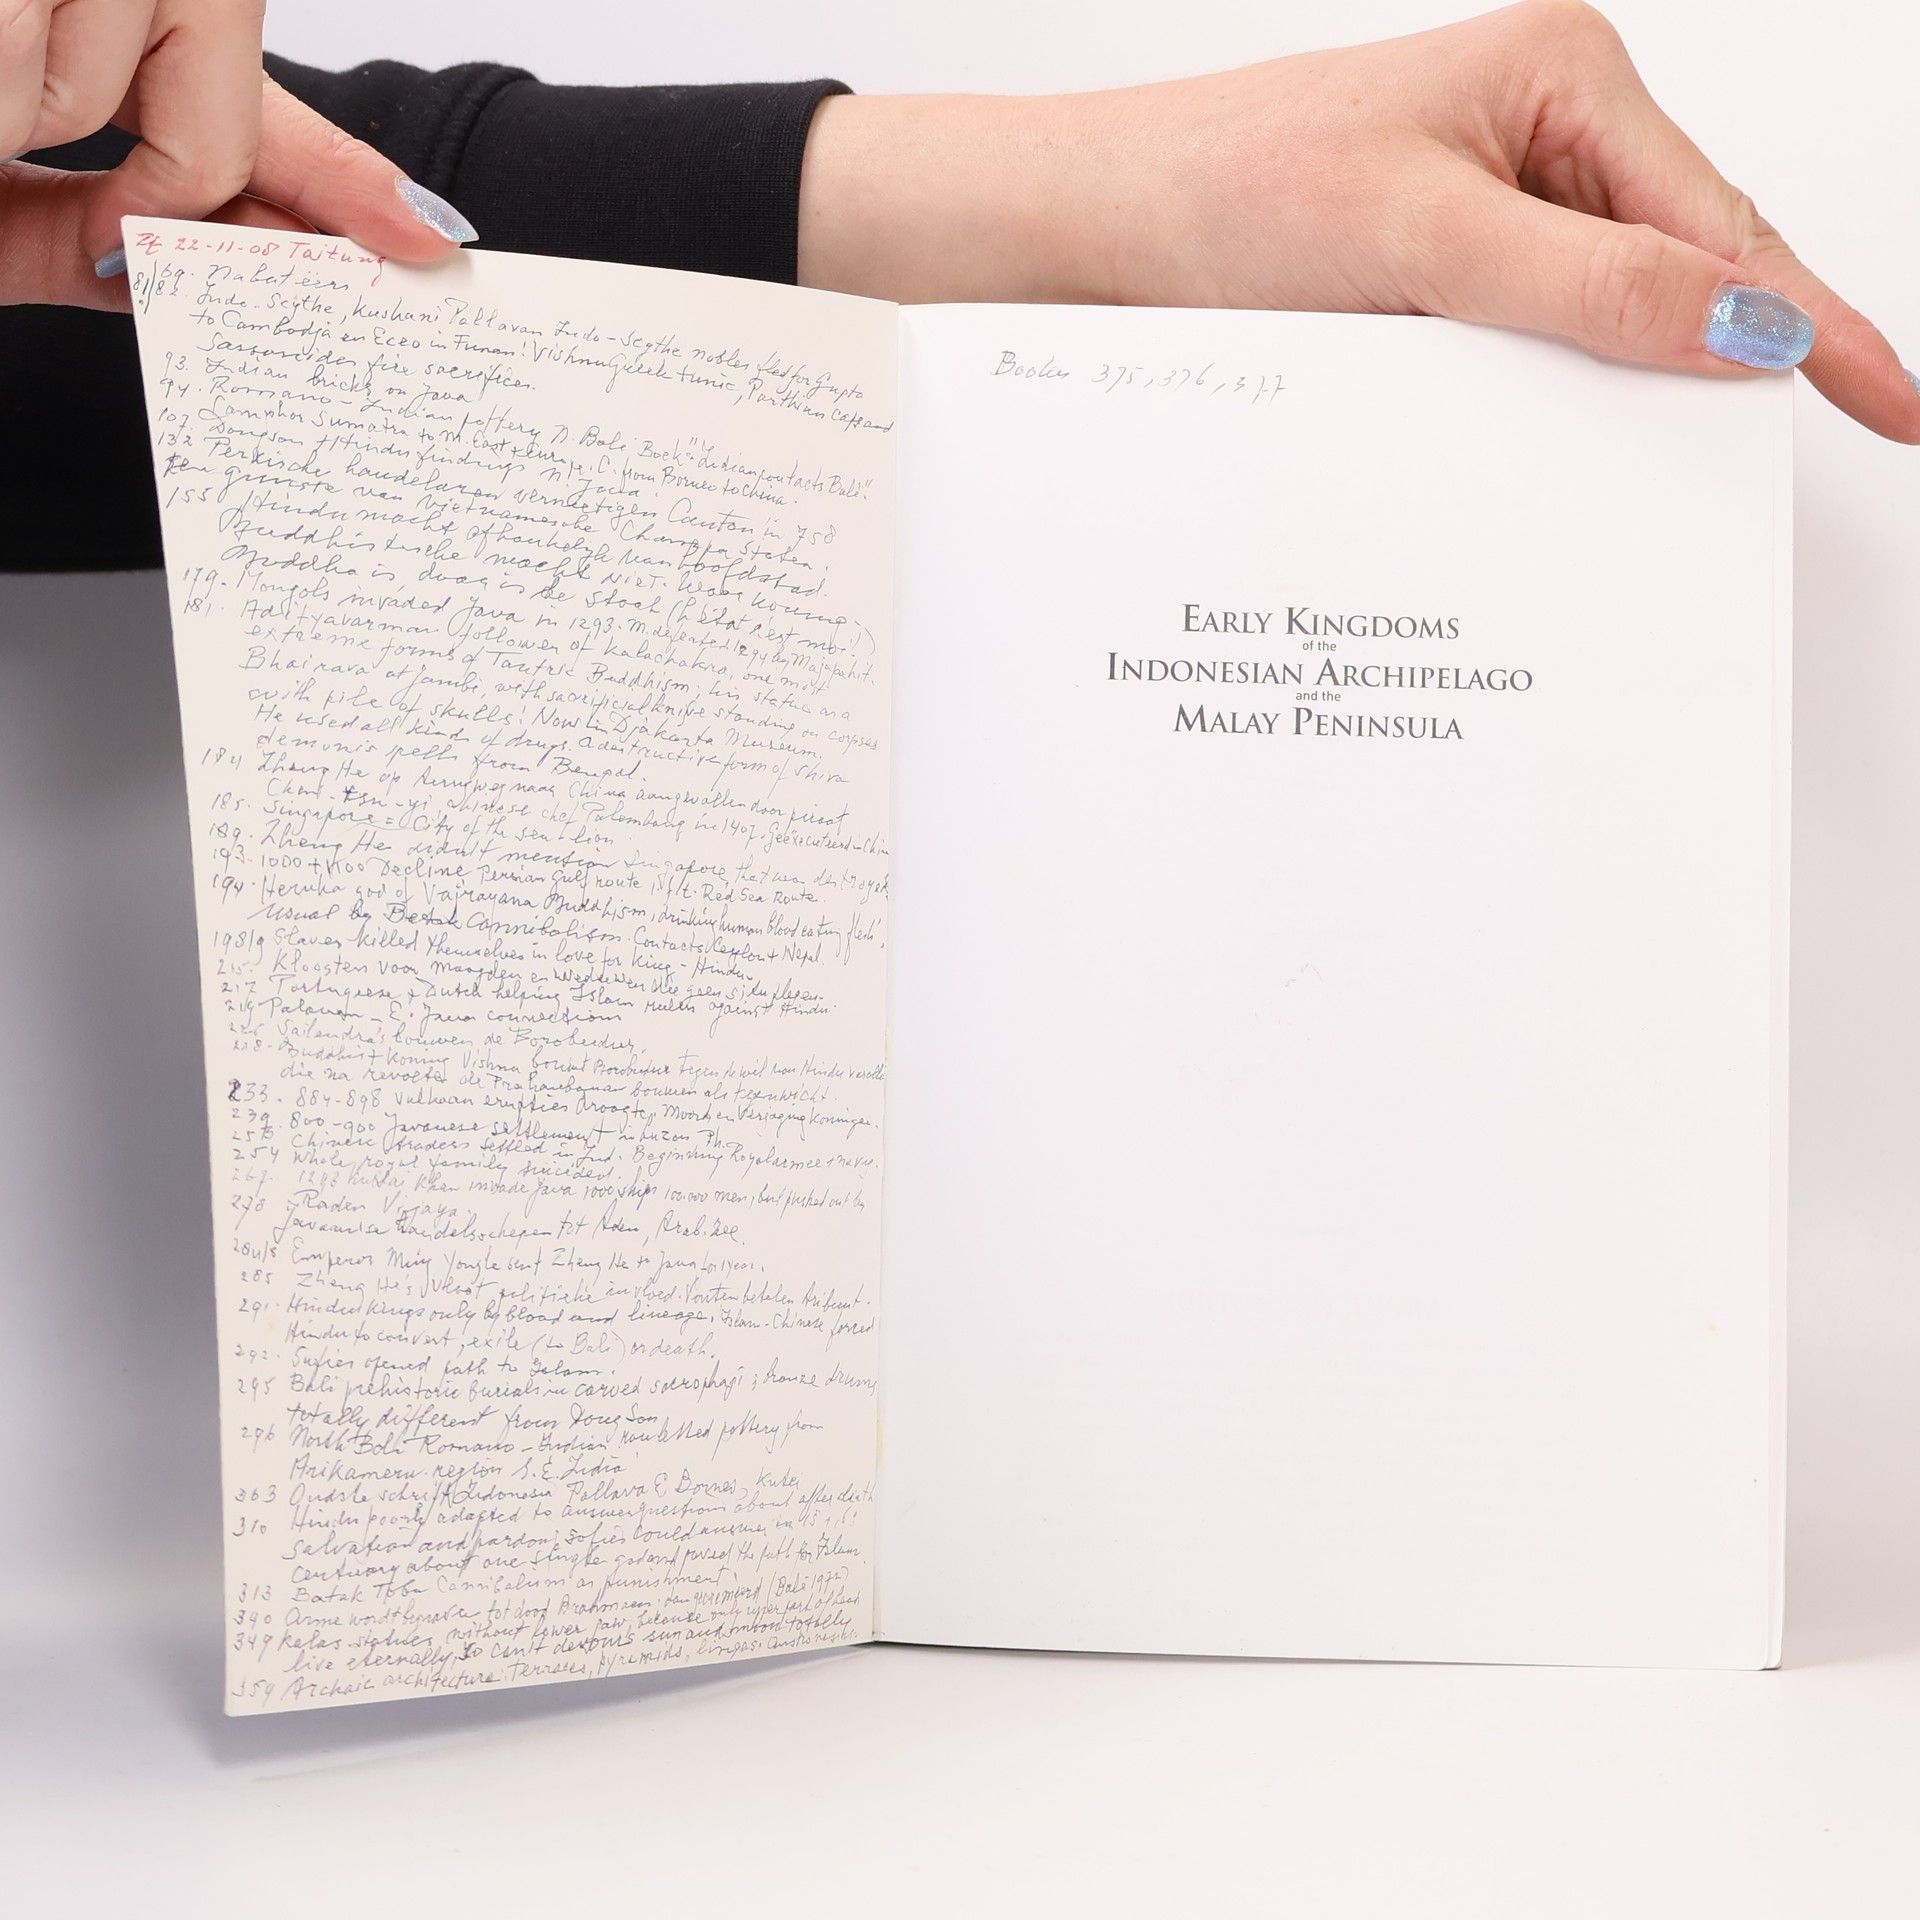 22-11-08 Taitung
69. Nabateërs
81/82. Indo-Scythe, Kushani Pallavan Indo-Scythe nobles fled for Gupta
to Cambodja en Eceo in Funan! Vishnu Greek tunic, Parthian caps and
fire sacrifices.
93. Indian bricks on Java
94. Romano-Indian pottery N. Bali Boek: "Indian contacts Bali"
107. Sumatra to M. East + from Borneo to China.
132 Dongson + Hindu findings N. Java.
Perzische handelaren vernietigen Canton in 758
ten gunste van Vietnamesche Champa Staten.
155 Hindu macht afhankelijk van hoofdstad.
Buddhistische macht NIET. Waar Koning-
Buddha is, daar is de staat (l'état c'est moi!)
179. Mongols invaded Java in 1293. M. defeated 1294 by Majapahit.
181. Adityavarman follower of Kalachakra, one most
extreme forms of Tantric Buddhism; his statue as a
Bhairava at Jambi, with sacrificial knive standing on corpses
with pile of skulls! Now in Djakarta Museum.
He used all kinds of drugs. A destructive form of Shiva
demonis spells from Bengal.
184 Zheng He op terugweg naar China aangevallen door piraat
Chen-tsu-yi, chinese chef Palembang in 1407. Geëxecuteerd in China
185. Singapore = City of the sea-lion
189. Zheng He didn't mention Singapore, that was destroyed.
193. 1000 + 1100 Decline Persian Gulf route, Red Sea Route.
194. Heruka god of Vajrayana Buddhism, drinking human blood eating flesh,
usual by Batak Cannibalism. Contacts Ceylon + Nepal.
198/9 Slaves killed themselves in love for King - Hindu.
215. Klooster voor maagden en weduwen die geen
217 Portuguese + Dutch helping Islam rulers against Hindu
219 E. Java connections
226 Sailendra's bouwen de Borobudur.
228. Buddhist Koning Vishnu bouwt Borobudur tegen de wil van Hindu
die na revoltes de Prahambanan bouwen als tegenwicht.
233. 884-898 Vulkaan erupties droogte, Moord en verjaging koningen.
239. 800-900 Javanese settlement in Luzon Ph.
Chinese traders settled in Ind. Beginning Royal armee + navy.
254 Whole royal family suicided.
267. Kublai Khan invade Java 1000 ships 100.000 men, but pushed out by
Raden Vijaya.
278 Javaanse handelsschepen tot Aden, Arab. zee.
284/5 Emperor Ming Yongle sent Zheng He to Java for 1 year.
285 Zheng He's Vloot politieke invloed. Vorsten betalen tribuut.
291. Hindu kings only by blood and lineage. Islam-Chinese forced
Hindu to convert, exile (to Bali) or death.
292. Sufies opened path to Islam.
295 Bali prehistoric burials in carved sacrophagi; bronze drums
totally different from Dong Son
296 North Bali Romano-Indian rouletted pottery from
Arikameru region S.E. India
303 Oudste schrift Indonesia Pallava E Borneo, Kutei
310 Hindu poorly adapted to answer questions about after death
salvation and pardon, Sofies could answer in 15 + 16
century about one single god and paved the path for Islam.
313 Batak Toba Cannibalism as punishment
340 Arme wordt begraven tot dood Brahmaens (Bali 1972)
349 Kalas-statues without lower jaw, because only upper part of head
live eternally, so can't devours sun and moon totally
359 Archaic architecture: Terraces, pyramids, lingas.
Boeken 375, 376, 377
EARLY KINGDOMS
of the
INDONESIAN ARCHIPELAGO
and the
MALAY PENINSULA